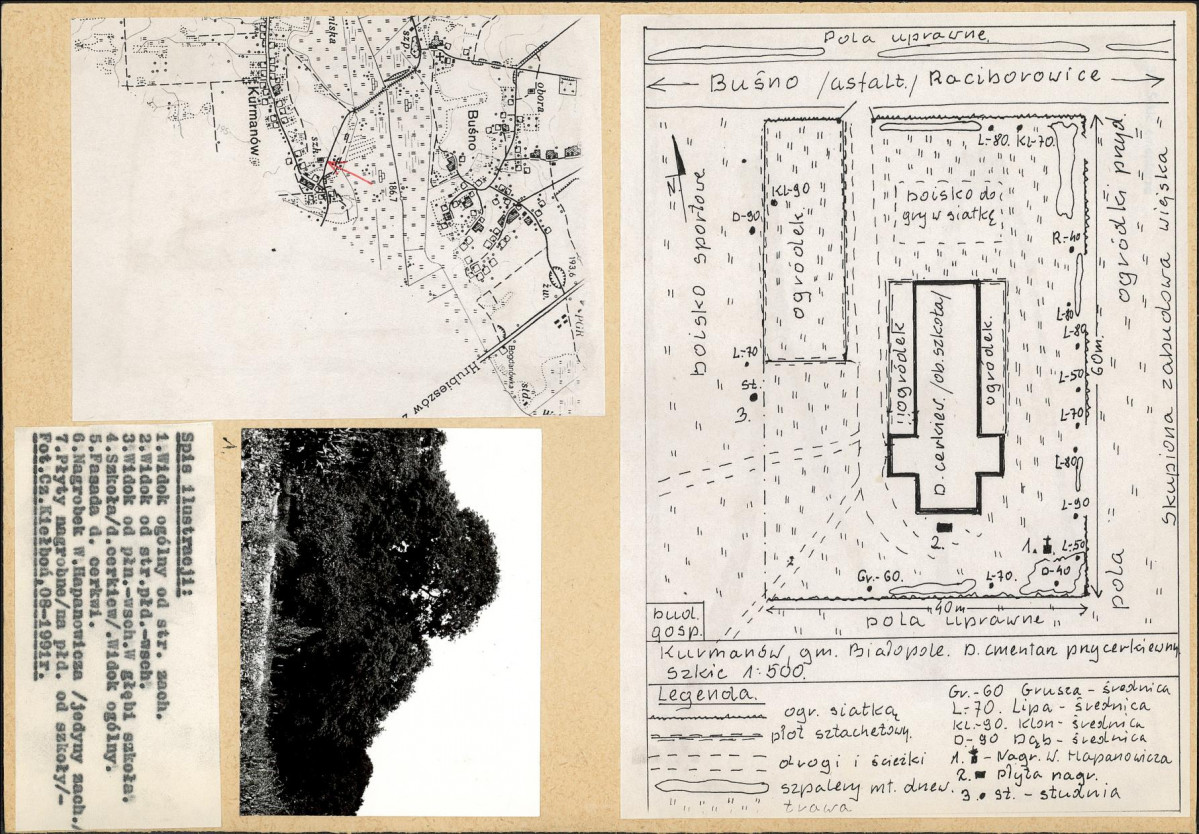 niska
szp.
obora
Kurmanów
szk
Buśno
186,7
193,6
żw.
PGR
Bogdanówka
Hrubieszów
Spis ilustracji:
1.Widok ogólny od str. zach.
2.Widok od str.płd.-wsch.
3.Widok od płn.-wsch.W głębi szkoła.
4.Szkoła/d.cerkiew/.Widok ogólny.
5.Fasada d. cerkwi.
6.Nagrobek W.Hapanowicza /jedyny zach./
7.Płyty nagrobne/na płd. od szkoły/-
Fot.Cz.Kiełboń,08-1991r.
1
Pola uprawne
Buśno /asfalt./ Raciborowice
L-80. KL-70.
N
boisko sportowe
KL-90
D-90
ogródek
boisko do
gry w siatkę
R.-40
ogródki przyd.
Skupiona zabudowa wiejska
L-80
L-80
60m.
L-50
L-70
L-80
L-90
L-50
ogródek
D. cerkiew./ob. szkoła/
ogródek.
L-70
St.
3.
2.
1.
D-40
Gr.-60.
L-70.
pola
40m
bud.
gosp.
pola uprawne
Kurmanów, gm. Białopole. D. cmentarz przycerkiewny
Szkic 1:500.
Legenda.
ogr. siatką
płot sztachetowy.
drogi i ścieżki
szpalery mł. drzew.
trawa
Gr.-60 Grusza - średnica
L-70. Lipa - średnica
KL-90. Klon - średnica
D-90 Dąb - średnica
1. - Nagr. W. Hapanowicza
2. płyta nagr.
3. st. - studnia